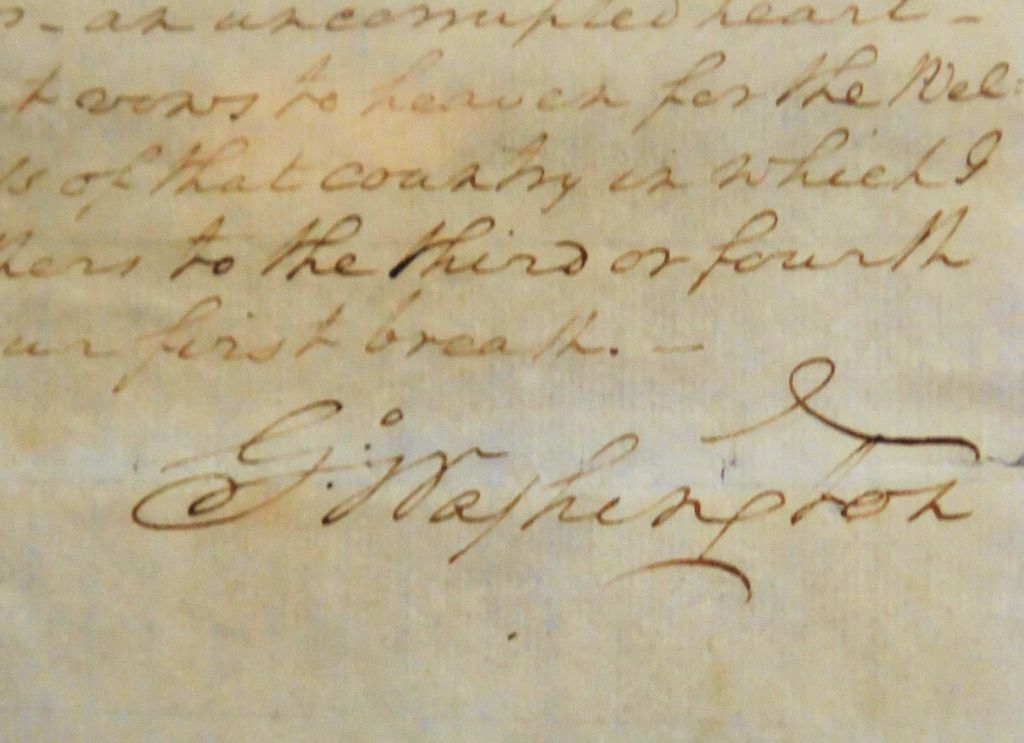 - an uncorrupted heart -
t vows to heaven for the Wel:
of that country in which I
hers to the third or fourth
ur first breath. -
G:Washington